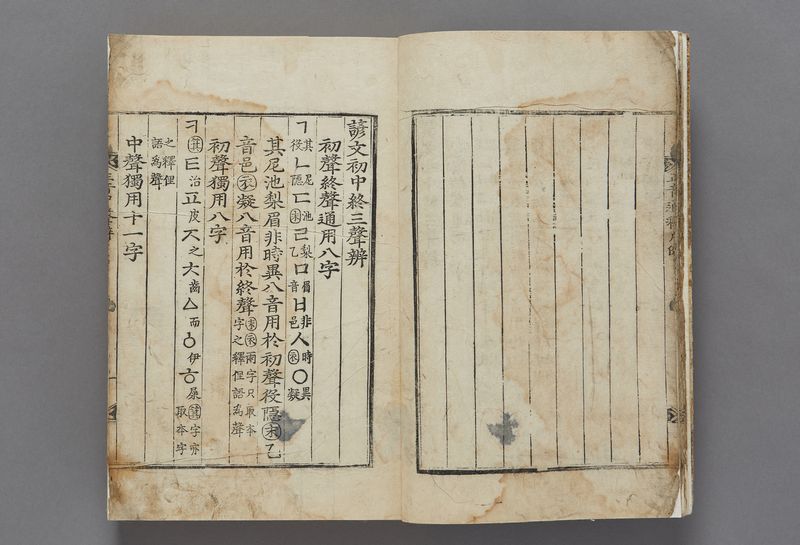 諺文初中終三聲辨
初聲終聲通用八字
ㄱ其役ㄴ尼隱ㄷ池末ㄹ梨乙ㅁ眉音ㅂ非邑ㅅ時衣ㅇ異凝
其尼池梨眉非時異八音用於初聲役隱末乙
音邑衣凝八音用於終聲末衣兩字只取本字之釋俚語爲聲
初聲獨用八字
ㅋ箕ㅌ治ㅍ皮ㅈ之ㅊ齒ㅿ而ㆁ伊ㅎ屎箕字亦取本字
之釋俚語爲聲
中聲獨用十一字